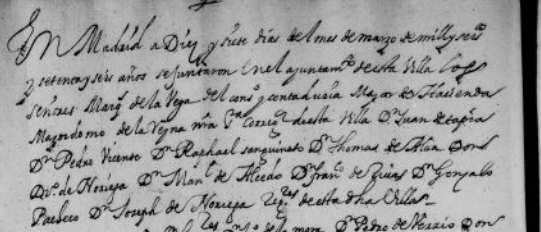 En Madrid a Diez y siete dias del mes de marzo de mill y seisº
y setenta y seis años se juntaron en el ajuntamº desta Villa los
señores Marqˢ de la Vega del consº y contaduria Mayor de Hacienda
Mayordomo de la Reyna nrª Sª Corregºʳ desta Villa Dⁿ Juan de tapia
Dⁿ Pedro Vicente Dⁿ Raphael sanguineto Dⁿ Thomas de Alba Don
de Noriega Dⁿ Manˡ de Dⁿ franᶜº de Viuas Dⁿ Gonzalo
Pacheco Dⁿ Joseph de Noriega Regʳᵉˢ desta dha Villa
Dⁿ Pedro de Don